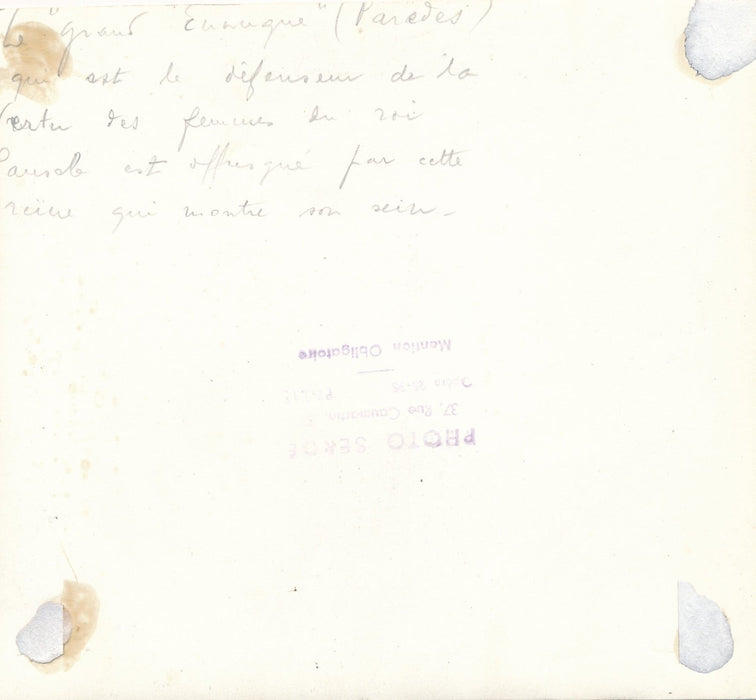 Le "grand Eunuque" (Parédès)
qui est le défenseur de la
Vertu des femmes du roi
Pausole est offusqué par cette
reine qui montre son sein -
PHOTO
37, Rue Caumartin
Mention Obligatoire